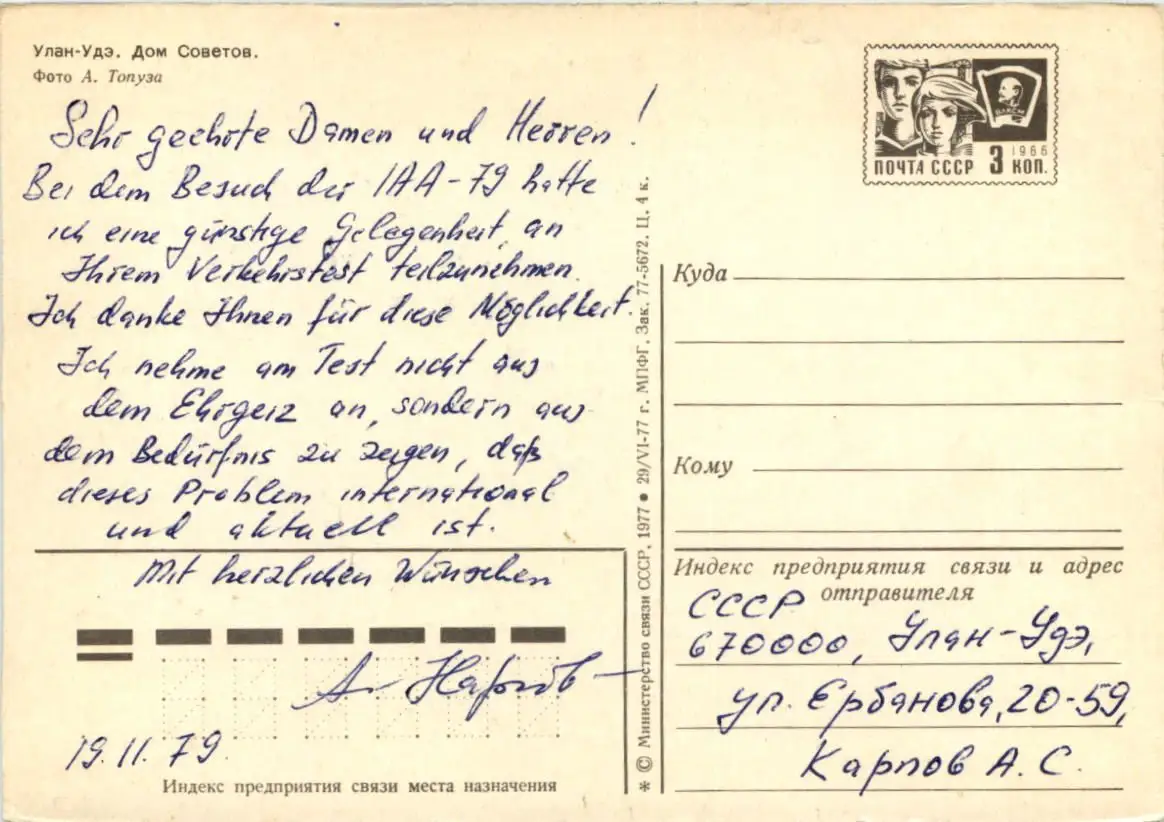 Улан-Удэ. Дом Советов.
Фото А. Топуза
Sehr geehrte Damen und Herren!
Bei dem Besuch der IAA-79 hatte
ich eine günstige Gelegenheit, an
Ihrem Verkehrstest teilzunehmen.
Ich danke Ihnen für diese Möglichkeit.
Ich nehme am Test nicht aus
dem Ehrgeiz an, sondern aus
dem Bedürfnis zu zeigen, daß
dieses Problem international
und aktuell ist.
Mit herzlichen Wünschen
А. Карпов
19.11.79
Индекс предприятия связи места назначения
* © Министерство связи СССР, 1977 • 29/VI-77 г. МПФГ. Зак. 77-5672. Ц. 4 к.
ВЛКСМ
1966
ПОЧТА СССР 3 КОП.
Куда
Кому
Индекс предприятия связи и адрес
отправителя
СССР
670000, Улан-Удэ,
ул. Ербанова, 20-59,
Карпов А. С.